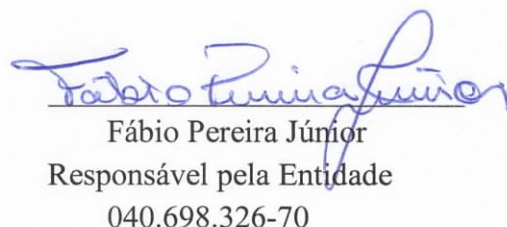 Fábio Pereira Júnior
Fábio Pereira Júnior
Responsável pela Entidade
040.698.326-70